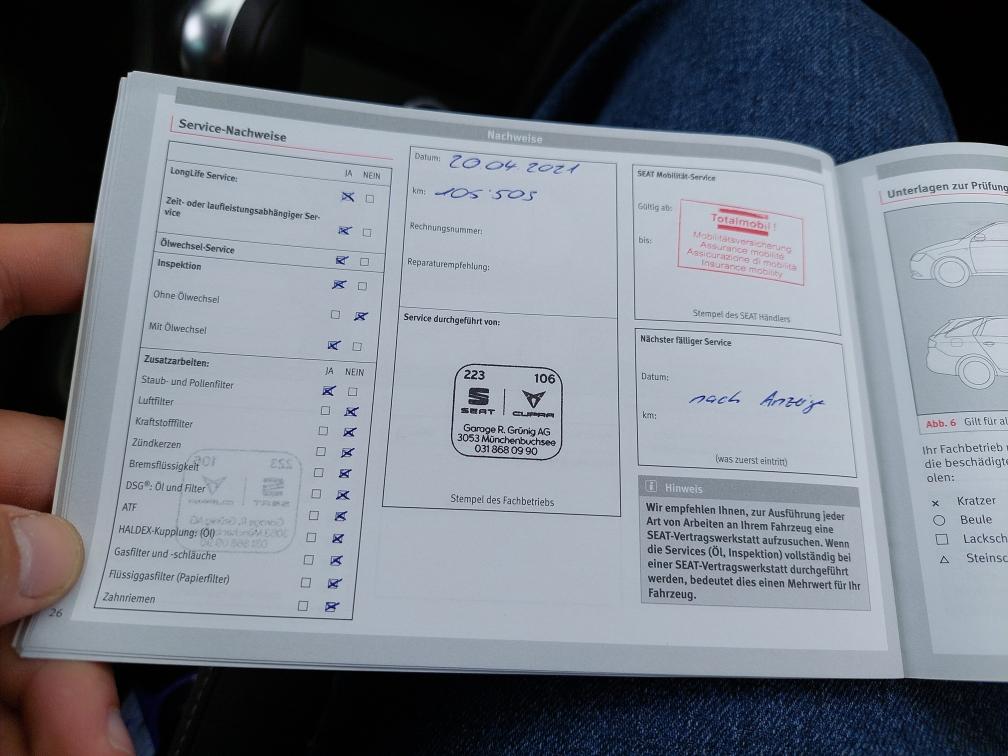 Service-Nachweise
Nachweise
JA NEIN
LongLife Service:
Zeit- oder laufleistungsabhängiger Ser-
vice
Ölwechsel-Service
Inspektion
Ohne Ölwechsel
Mit Ölwechsel
Zusatzarbeiten: JA NEIN
Staub- und Pollenfilter
Luftfilter
Kraftstofffilter
Zündkerzen
Bremsflüssigkeit
DSG®: Öl und Filter
ATF
HALDEX-Kupplung: (Öl)
Gasfilter und -schläuche
Flüssiggasfilter (Papierfilter)
Zahnriemen
26
Datum: 20 04 2021
km: 105'505
Rechnungsnummer:
Reparaturempfehlung:
Service durchgeführt von:
223 106
SEAT CUPRA
Garage R. Grünig AG
3053 Münchenbuchsee
031 868 09 90
Stempel des Fachbetriebs
SEAT Mobilität-Service
Gültig ab:
bis:
Totalmobil!
Mobilitätsversicherung
Assurance mobilité
Assicurazione di mobilità
Insurance mobility
Stempel des SEAT Händlers
Nächster fälliger Service
Datum:
nach Anzeige
km:
(was zuerst eintritt)
Hinweis
Wir empfehlen Ihnen, zur Ausführung jeder
Art von Arbeiten an Ihrem Fahrzeug eine
SEAT-Vertragswerkstatt aufzusuchen. Wenn
die Services (Öl, Inspektion) vollständig bei
einer SEAT-Vertragswerkstatt durchgeführt
werden, bedeutet dies einen Mehrwert für Ihr
Fahrzeug.
Unterlagen zur Prüfung
Abb. 6 Gilt für al
Ihr Fachbetrieb
die beschädigte
olen:
Kratzer
Beule
Lacksch
Steinsc